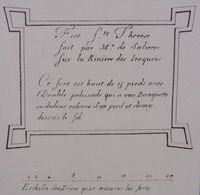 Fort Ste Therese
fait par Mr de Salieres
sur la Riviere des Iroquois
Ce fort est haut de 15 pieds avec
double palissade qui a une Banquette
en dedans eslevee d'un pied et demy
dessus le sol
Eschelle des pour mesurer les forts